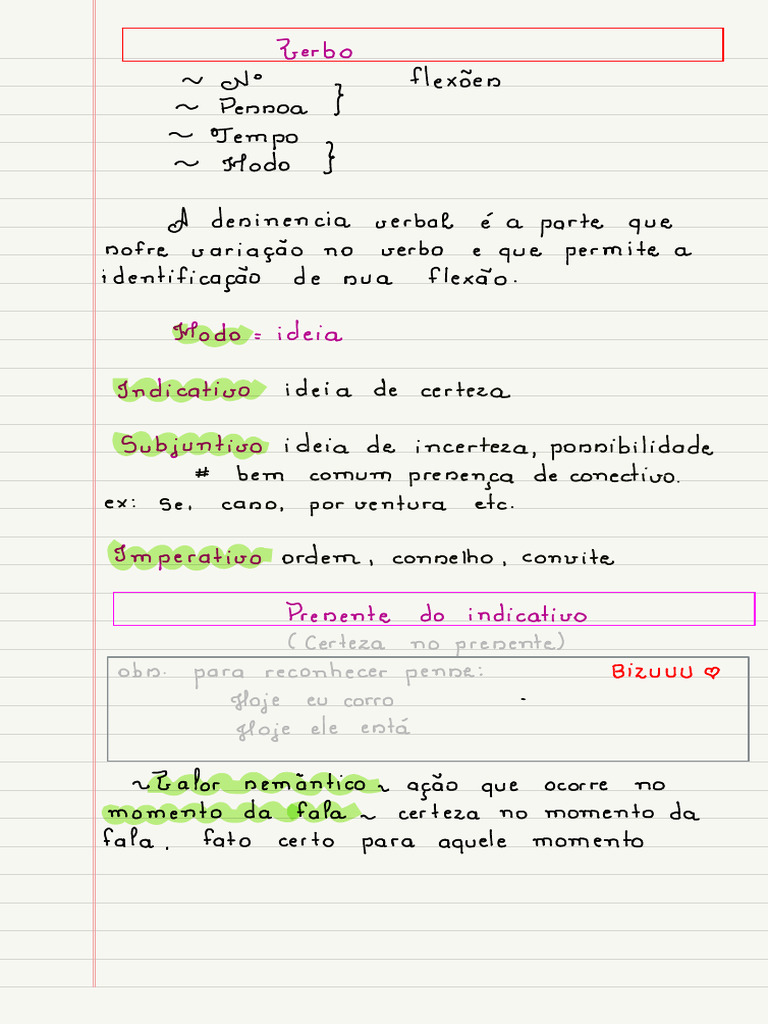 Verbo
~ Nº } flexões
~ Pessoa
~ Tempo }
~ Modo
A desinencia verbal é a parte que
sofre variação no verbo e que permite a
identificação de sua flexão.
Modo = ideia
Indicativo ideia de certeza
Subjuntivo ideia de incerteza, possibilidade
# bem comum presença de conectivo.
ex: Se, caso, por ventura etc.
Imperativo ordem, conselho, convite
Presente do indicativo
(Certeza no presente)
obs. para reconhecer pense: Bizuuu ♡
Hoje eu corro
Hoje ele está
~ Valor semântico ~ ação que ocorre no
momento da fala ~ certeza no momento da
fala, fato certo para aquele momento